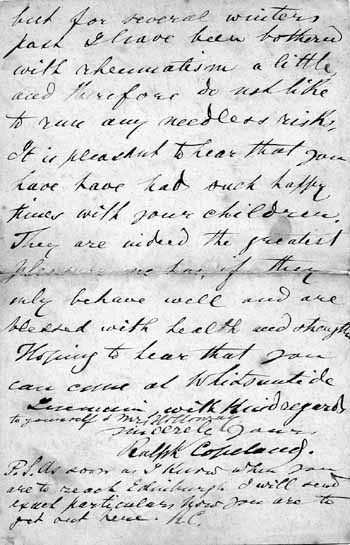 but for several winters
past I have been bothered
with rheumatism a little
and therefore do not like
to run any needless risk.
It is pleasant to hear that you
have have had such happy
times with your children.
They are indeed the greatest
pleasure one has, if they
only behave well and are
blessed with health and strength.
Hoping to hear that you
can come at Whitsuntide
I remain with kind regards
to yourself & Mrs
sincerely yours
Ralph Copeland.
P.S. As soon as I know when you
are to reach Edinburgh I will send
exact particulars how you are to
get out here. R.C.